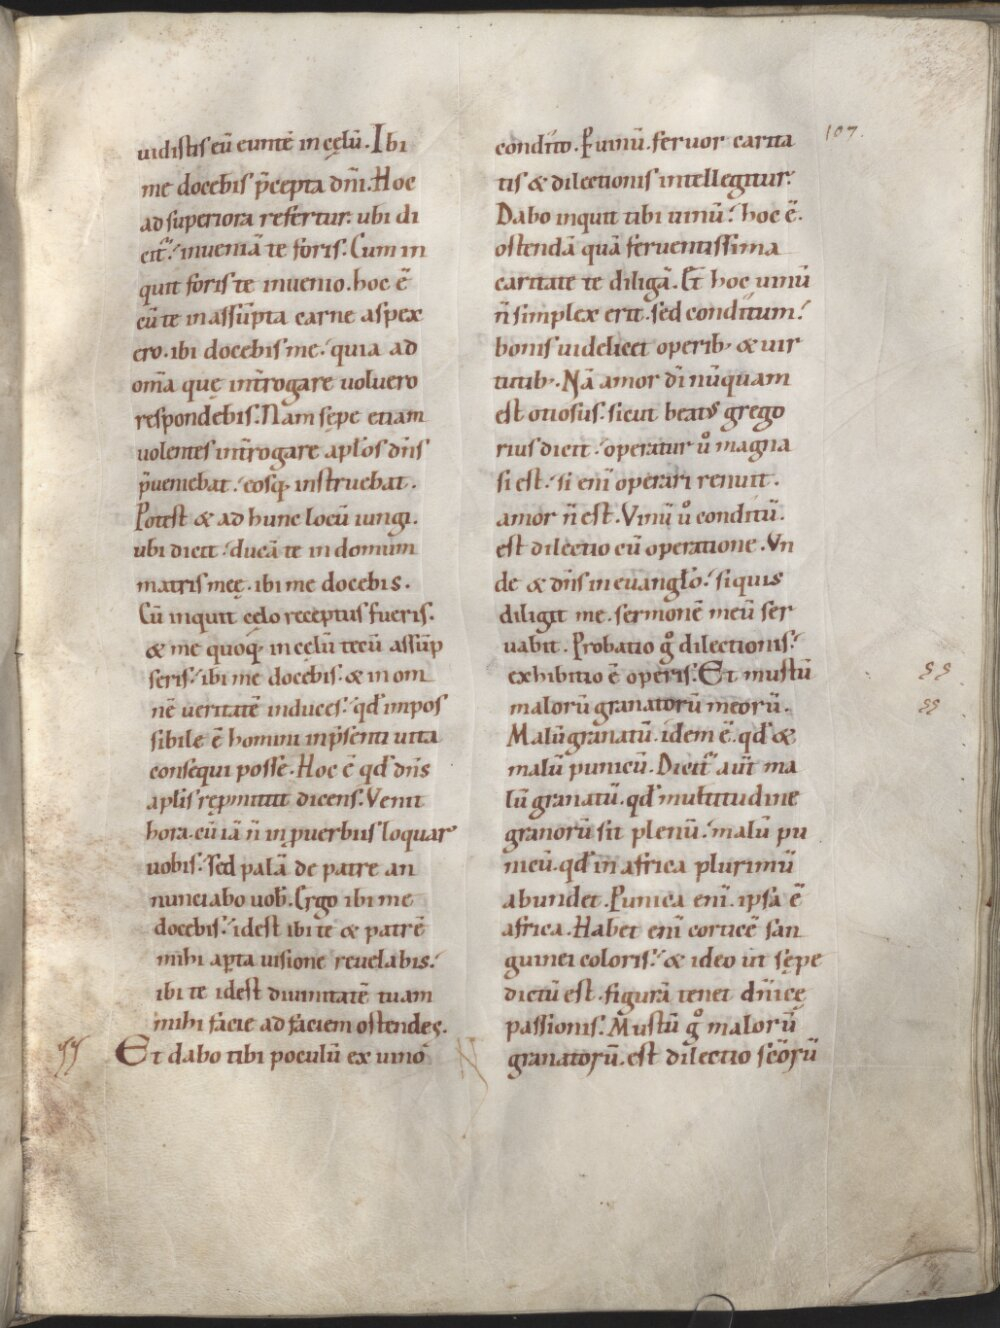 uidistis eū euntē in cęlū. Ibi
me docebis p̄cepta dn̄i. Hoc
ad superiora refertur. ubi di
cit᷑. inueniā te foris. Cum in
quit foris te inuenio. hoc ē
cū te in assūpta carne aspex
ero. ibi docebis me. quia ad
om̄a quę int̄rogare uoluero
respondebis. Nam sępe etiam
uolentes int̄rogare apl̄os dn̄s
p̄ueniebat. eosq; instruebat.
Potest & ad hunc locū iungi.
ubi dicit. ducā te in domum
matris meę. ibi me docebis.
Cū inquit cęlo receptus fueris.
& me quoq; in cęlū tecū assūp
seris. ibi me docebis. & in om
nē ueritatē induces. qd̄ impos
sibile ē homini in p̄senti uita
consequi posse. Hoc ē qd̄ dn̄s
aplis repmittit dicens. Venit
hora. cū iā n̄ in ꝓuerbiis loquar
uobis. Sed palā de patre an
nunciabo uob. Ergo ibi me
docebis. idest ibi te & patrē
mihi aꝑta uisione reuelabis.
ibi te idest diuinitatē tuam
mihi facie ad faciem ostendes.
Et dabo tibi poculū ex uino
condito. P uinū. feruor carita
tis & dilectionis intellegitur.
Dabo inquit tibi uinū. hoc ē.
ostendā quā feruentissima
caritate te diligā. Et hoc uinū
n̄ simplex erit. sed conditum.
bonis uidelicet operib; & uir
tutib;. Nā amor dī nūquam
est otiosus. sicut beatꝰ grego
rius dicit. operatur uͦ magna
si est. si enī operari renuit.
amor n̄ est. Vinū uͦ conditū.
est dilectio cū operatione. Vn
de & dn̄s in euangl̄o. siquis
diligit me. sermonē meū ser
uabit. Probatio gͦ dilectionis.
exhibitio ē operis. Et mustū
malorū granatorū meorū.
Malū granatū. idem ē. qd̄ &
malū punicū. Dicit᷑ aūt ma
lū granatū. qd̄ multitudine
granorū sit plenū. malū pu
nicū. qd̄ in africa plurimū
abundet. Punica enī. ipsa ē
africa. Habet enī corticē san
guinei coloris. & ideo ut sępe
dictū est. figurā tenet dn̄icę
passionis. Mustū gͦ malorū
granatorū. est dilectio scōrū
107.